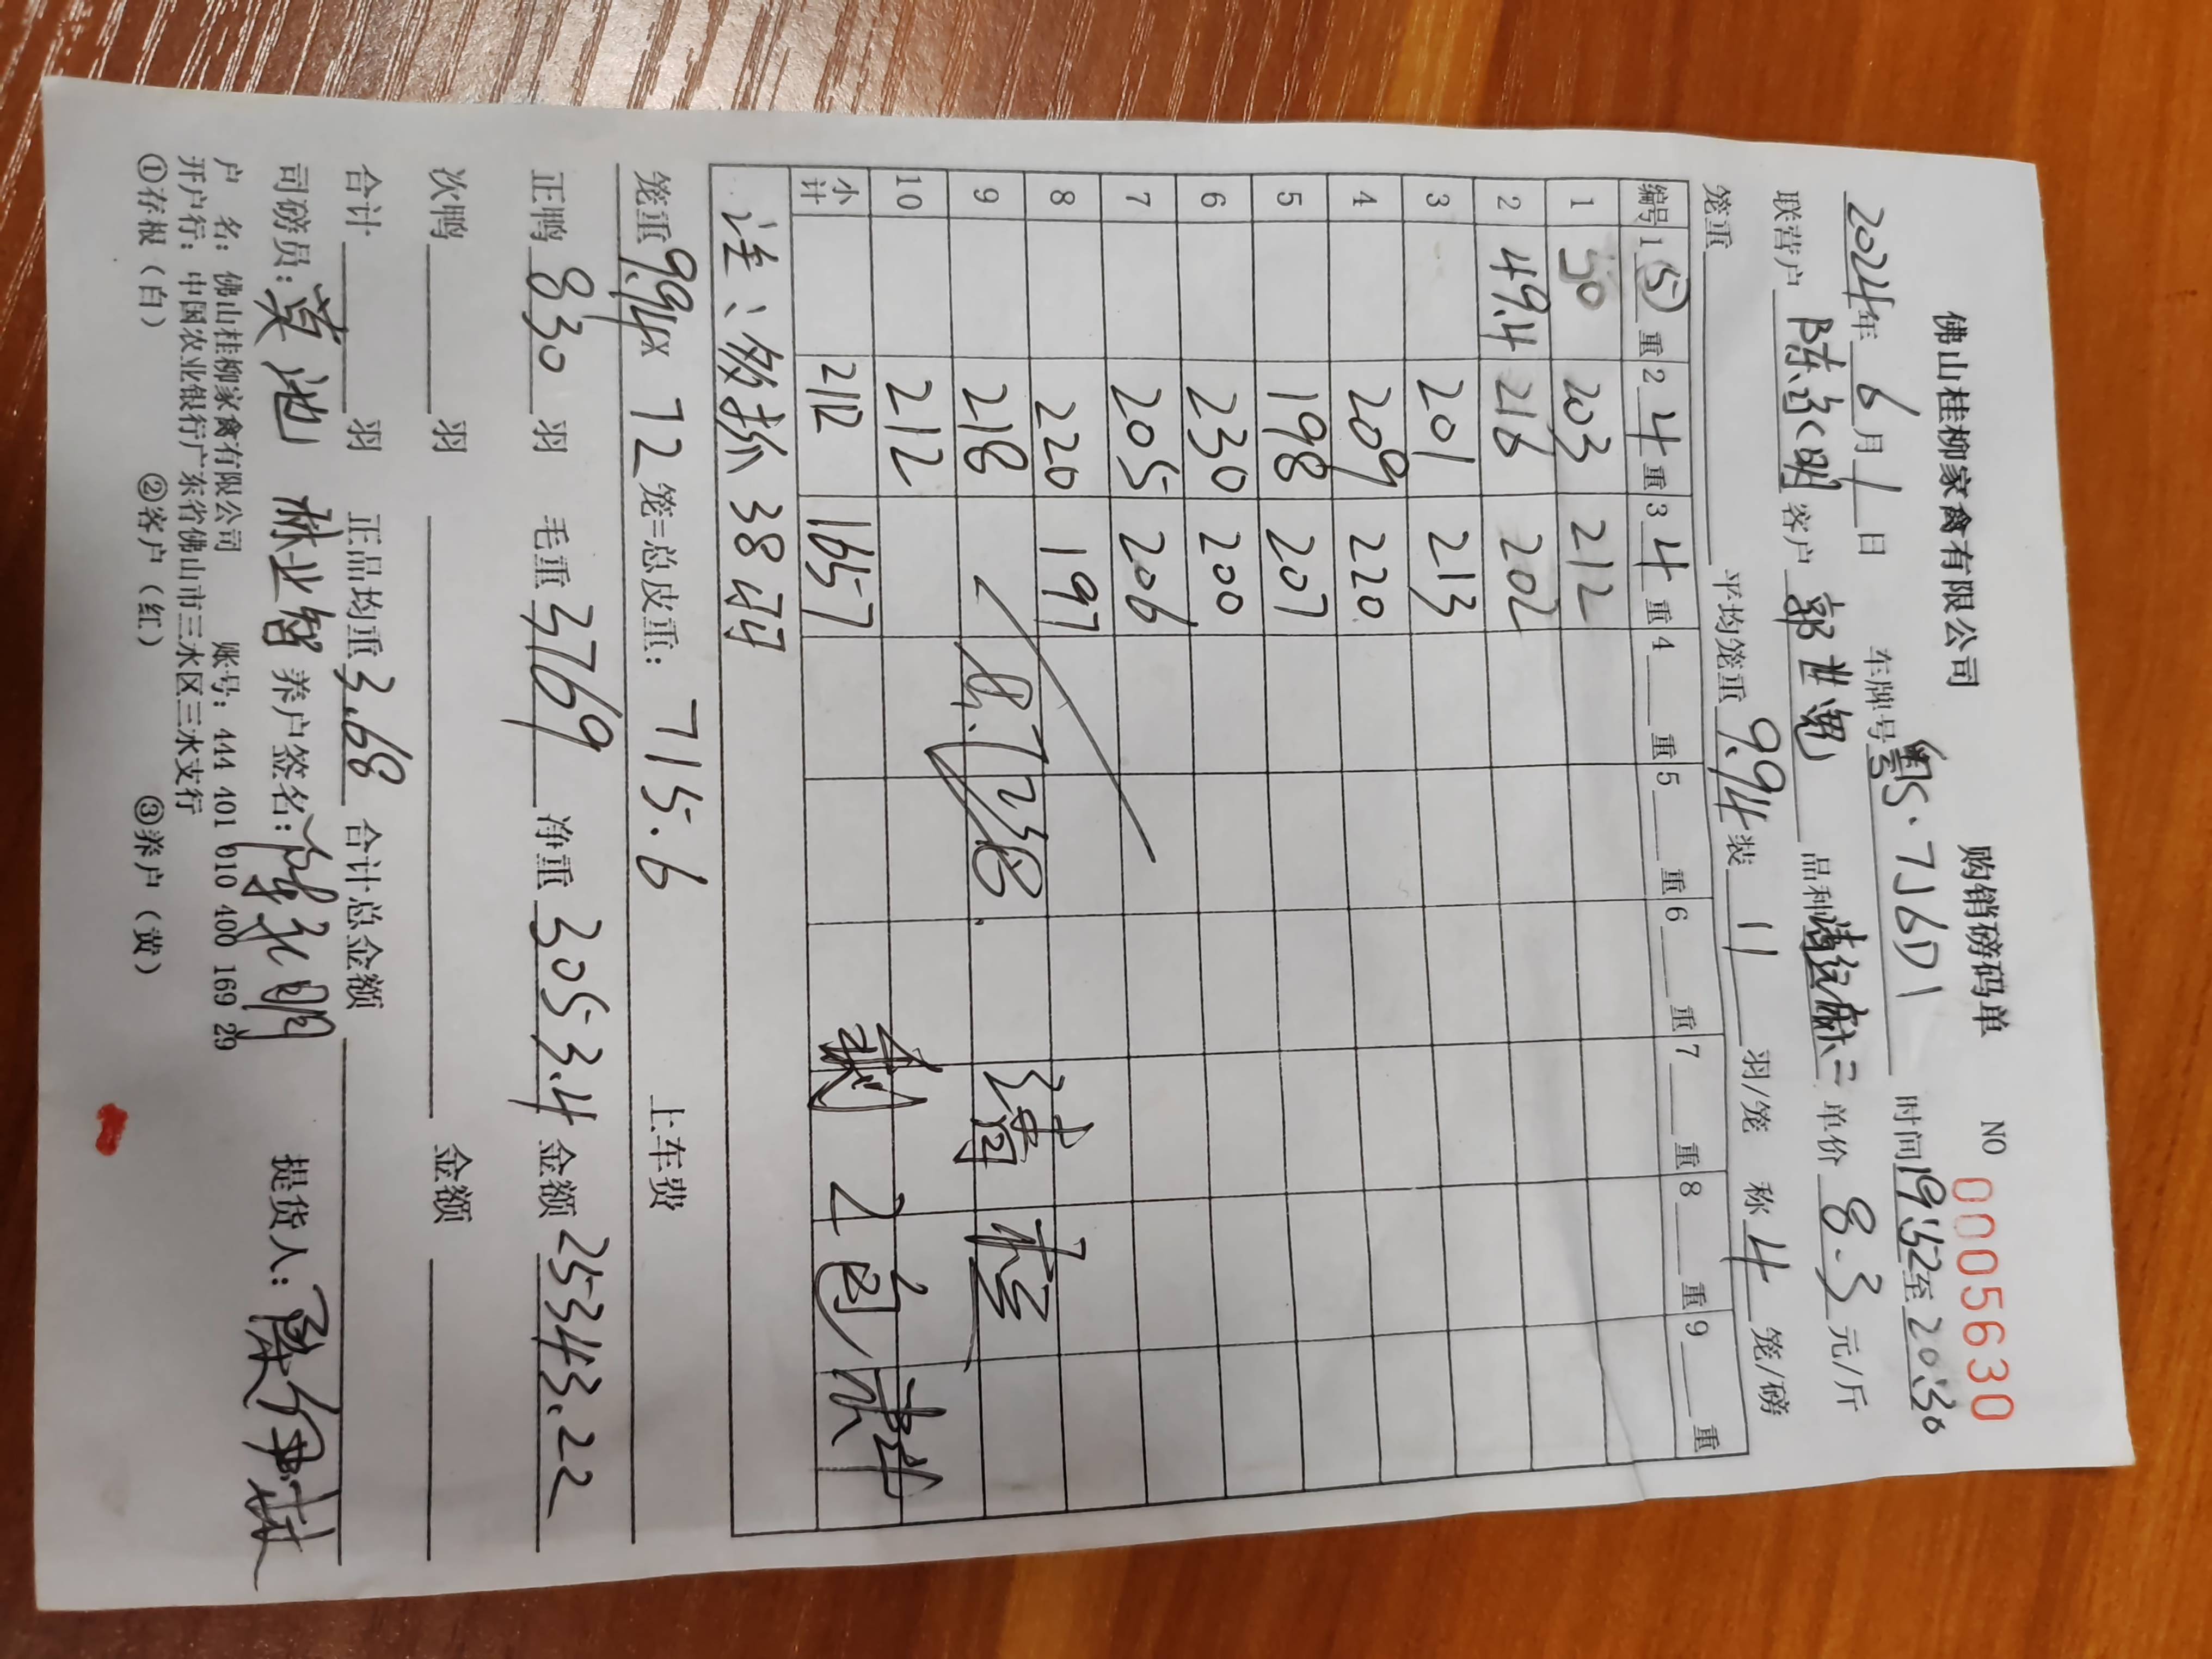 佛山桂柳家禽有限公司 购销磅码单 NO 0005630
2024年6月1日 车牌号粤S·7J6D1 时间19:52至20:30
联营户陈永明 客户郭世 品种 单价8.3元/斤
笼重 平均笼重9.94装11羽/笼 称4笼/磅
编号 1⑤重 2 4重 3 4重 4 重 5 重 6 重 7 重 8 重 9 重
1 50 203 212
2 49.4 216 202
3 201 213
4 209 220
5 198 207
6 230 200
7 205 206
8 220 197
9 218
10 212
小计 2112 1657
注、 38
笼重9.94×72笼=总皮重:715.6 上车费
正鸭830羽 毛重3769 净重3053.4 金额25343.22
次鸭 羽 金额
合计 羽 正品均重3.68 合计总金额
司磅员:莫池 林业智 养户签名:陈永明 提货人:
户 名:佛山桂柳家禽有限公司 账号:444 401 010 400 169 29
开户行:中国农业银行广东省佛山市三水区三水支行
①存根(白) ②客户(红) ③养户(黄)